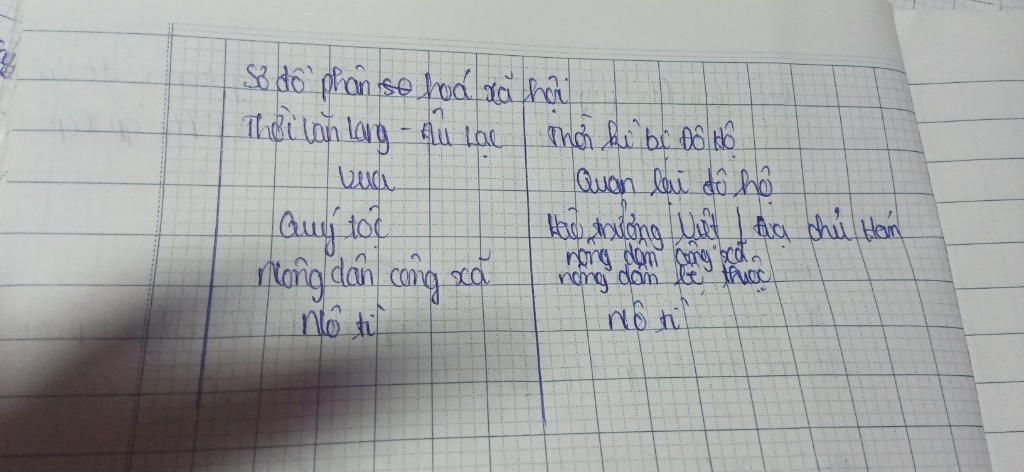 Sơ đồ phân hoá xã hội
Thời Văn Lang - Âu Lạc
Thời kì bị Đô Hộ
Vua
Quan lại đô hộ
Quý tộc
Hào trưởng Việt | địa chủ Hán
nông dân công xã
Nông dân công xã
nông dân lệ thuộc
Nô tì
nô tì